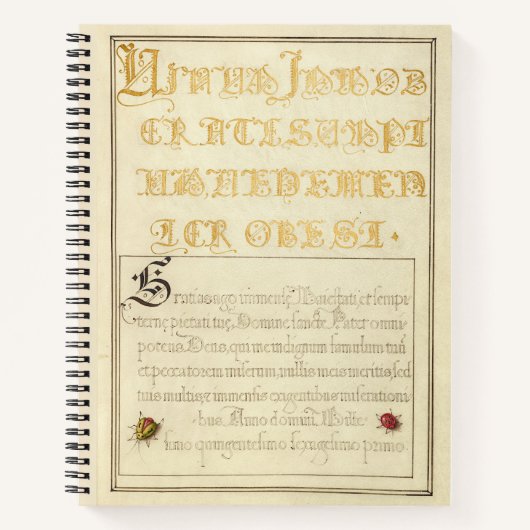 VINUM INMOD
ERATE SUMPT
UM, VEHEMEN
TER OBEST.
Gratias ago immensę Maiestati, et sempi
ternę pietati tuę, Domine sancte Pater omni
potens Deus, qui me indignum famulum tuū
et peccatorem miserum, nullis meis meritis, sed
tuis multis, et immensis exigentibus miseration
bus. Anno domini Mille
simo quingentesimo sexagesimo primo.